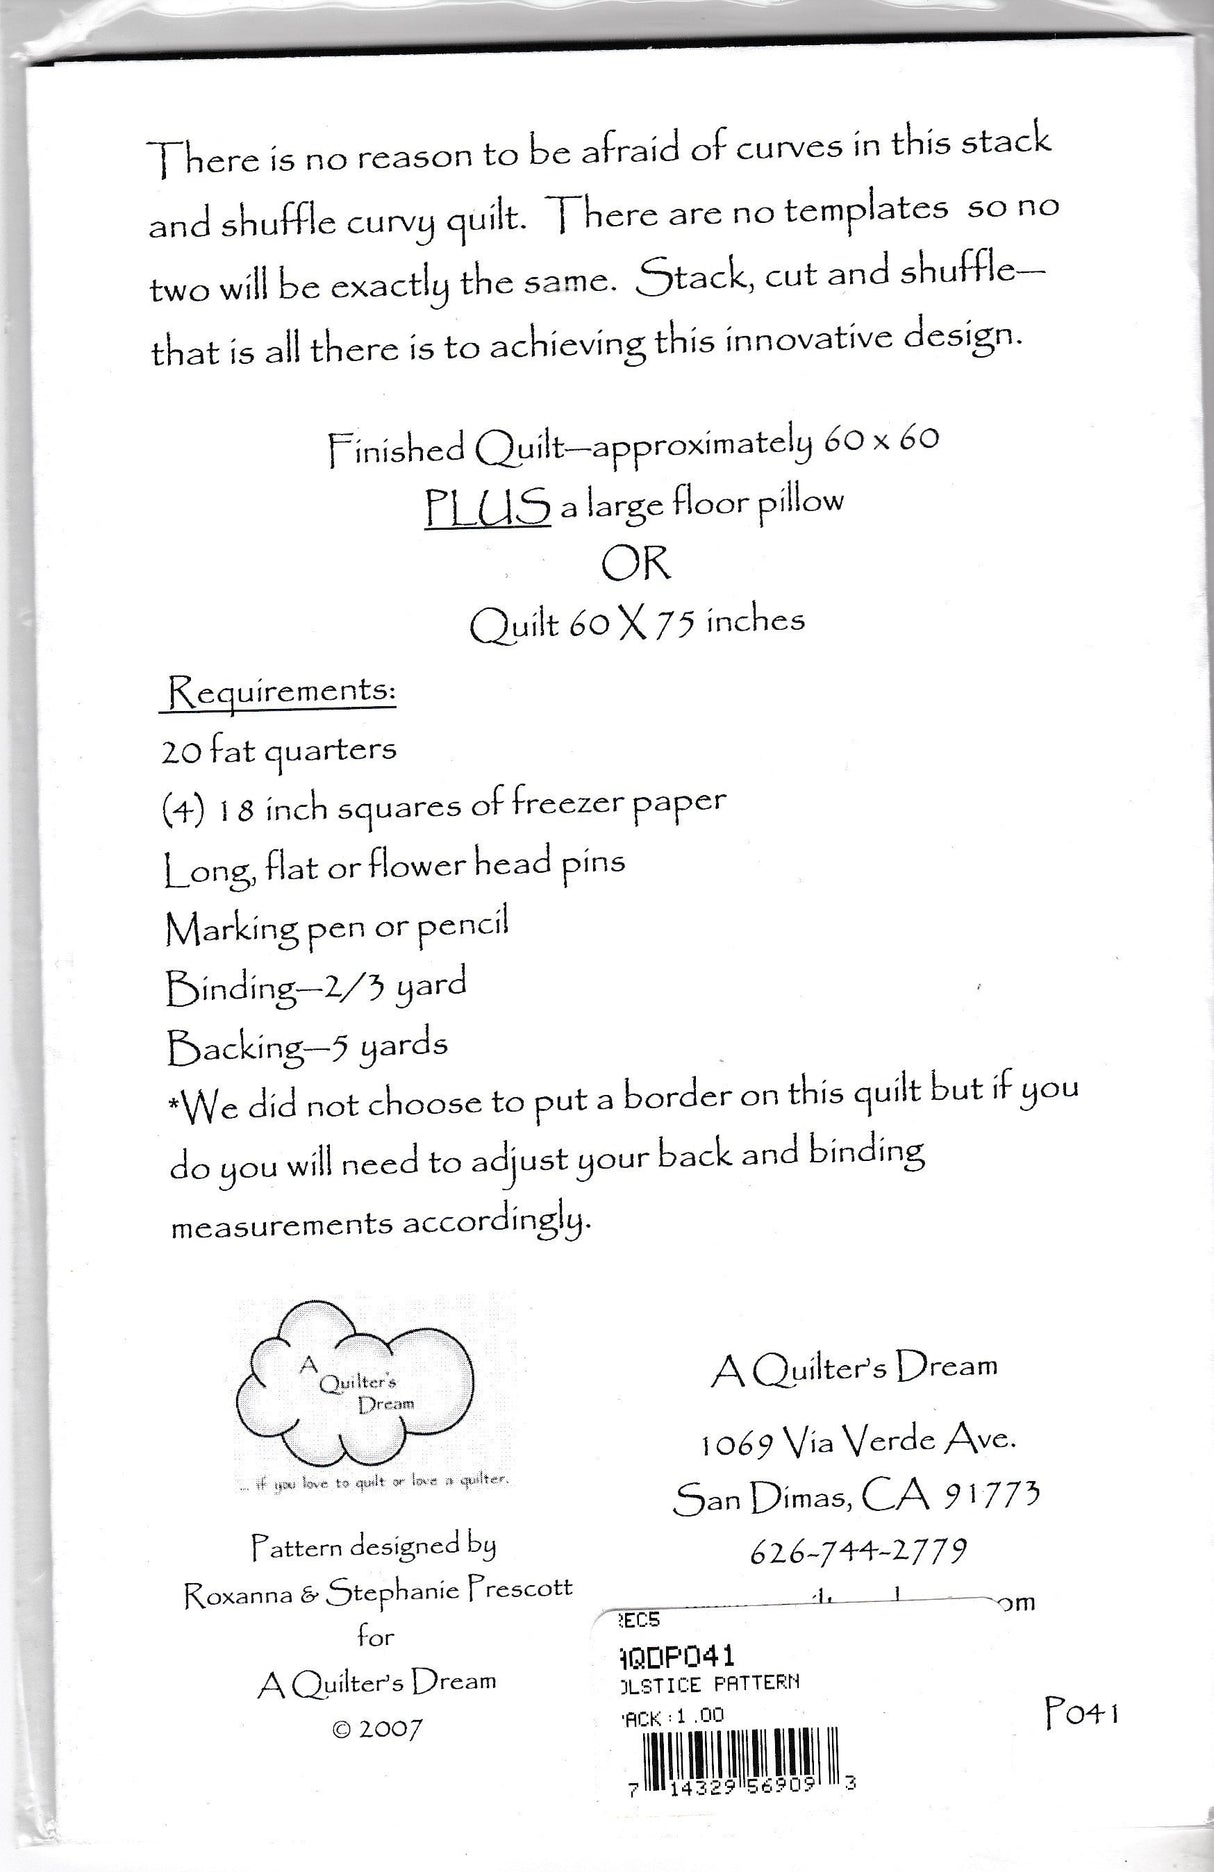 There is no reason to be afraid of curves in this stack
and shuffle curvy quilt. There are no templates so no
two will be exactly the same. Stack, cut and shuffle—
that is all there is to achieving this innovative design.
Finished Quilt—approximately 60 x 60
PLUS a large floor pillow
OR
Quilt 60 X 75 inches
Requirements:
20 fat quarters
(4) 18 inch squares of freezer paper
Long, flat or flower head pins
Marking pen or pencil
Binding—2/3 yard
Backing—5 yards
*We did not choose to put a border on this quilt but if you
do you will need to adjust your back and binding
measurements accordingly.
A
Quilter's
Dream
... if you love to quilt or love a quilter.
Pattern designed by
Roxanna & Stephanie Prescott
for
A Quilter's Dream
© 2007
A Quilter's Dream
1069 Via Verde Ave.
San Dimas, CA 91773
626-744-2779
om
REC5
QDP041
OLSTICE PATTERN
PACK:1.00
7 14329 56909 3
P041